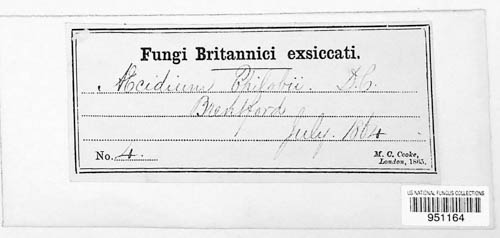 Fungi Britannici exsiccati.
Æcidium Epilobii. D.C.
Brentford
July. 1864
No. 4.
M. C. Cooke,
London, 1865.
US NATIONAL FUNGUS COLLECTIONS
951164